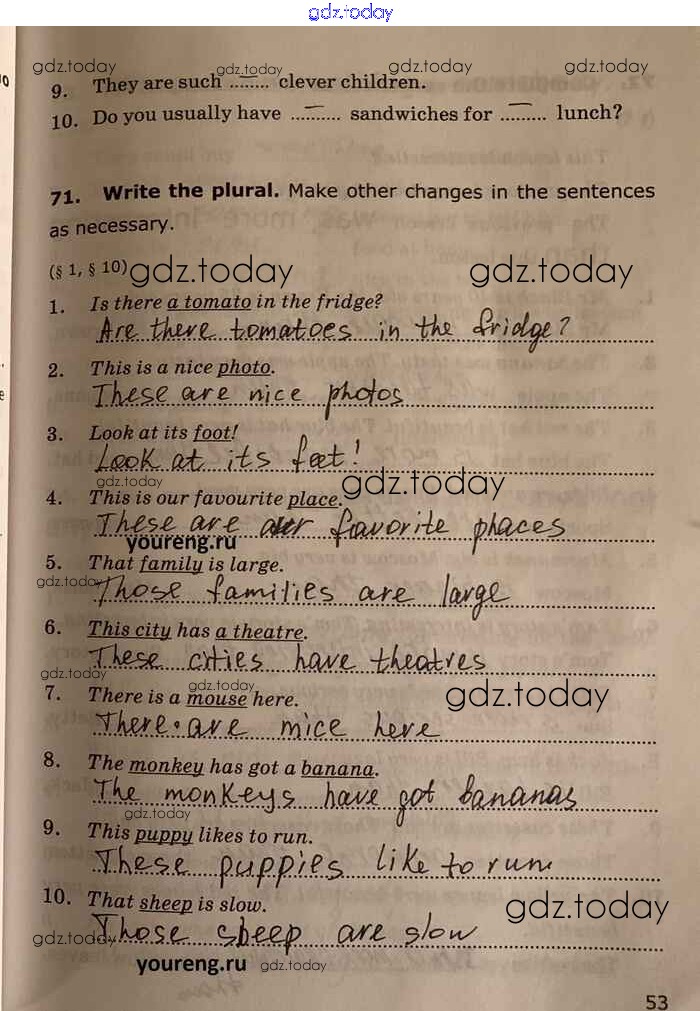 gdz.today
gdz.today gdz.today gdz.today
9. They are such ......... clever children.
10. Do you usually have .......... sandwiches for ......... lunch?
71. Write the plural. Make other changes in the sentences
as necessary.
(§ 1, § 10) gdz.today gdz.today
1. Is there a tomato in the fridge?
Are there tomatoes in the fridge?
2. This is a nice photo.
These are nice photos
3. Look at its foot!
Look at its feet!
gdz.today gdz.today
4. This is our favourite place.
These are our favorite phaces
youreng.ru
5. That family is large.
gdz.today
Those families are large
6. This city has a theatre.
These cities have theatres
gdz.today gdz.today gdz.today
7. There is a mouse here.
There are mice here
8. The monkey has got a banana.
The monkeys have got bananas
gdz.today
9. This puppy likes to run.
These puppies like to run
10. That sheep is slow.
gdz.today
Those sheep are slow
gdz.today youreng.ru gdz.today
53